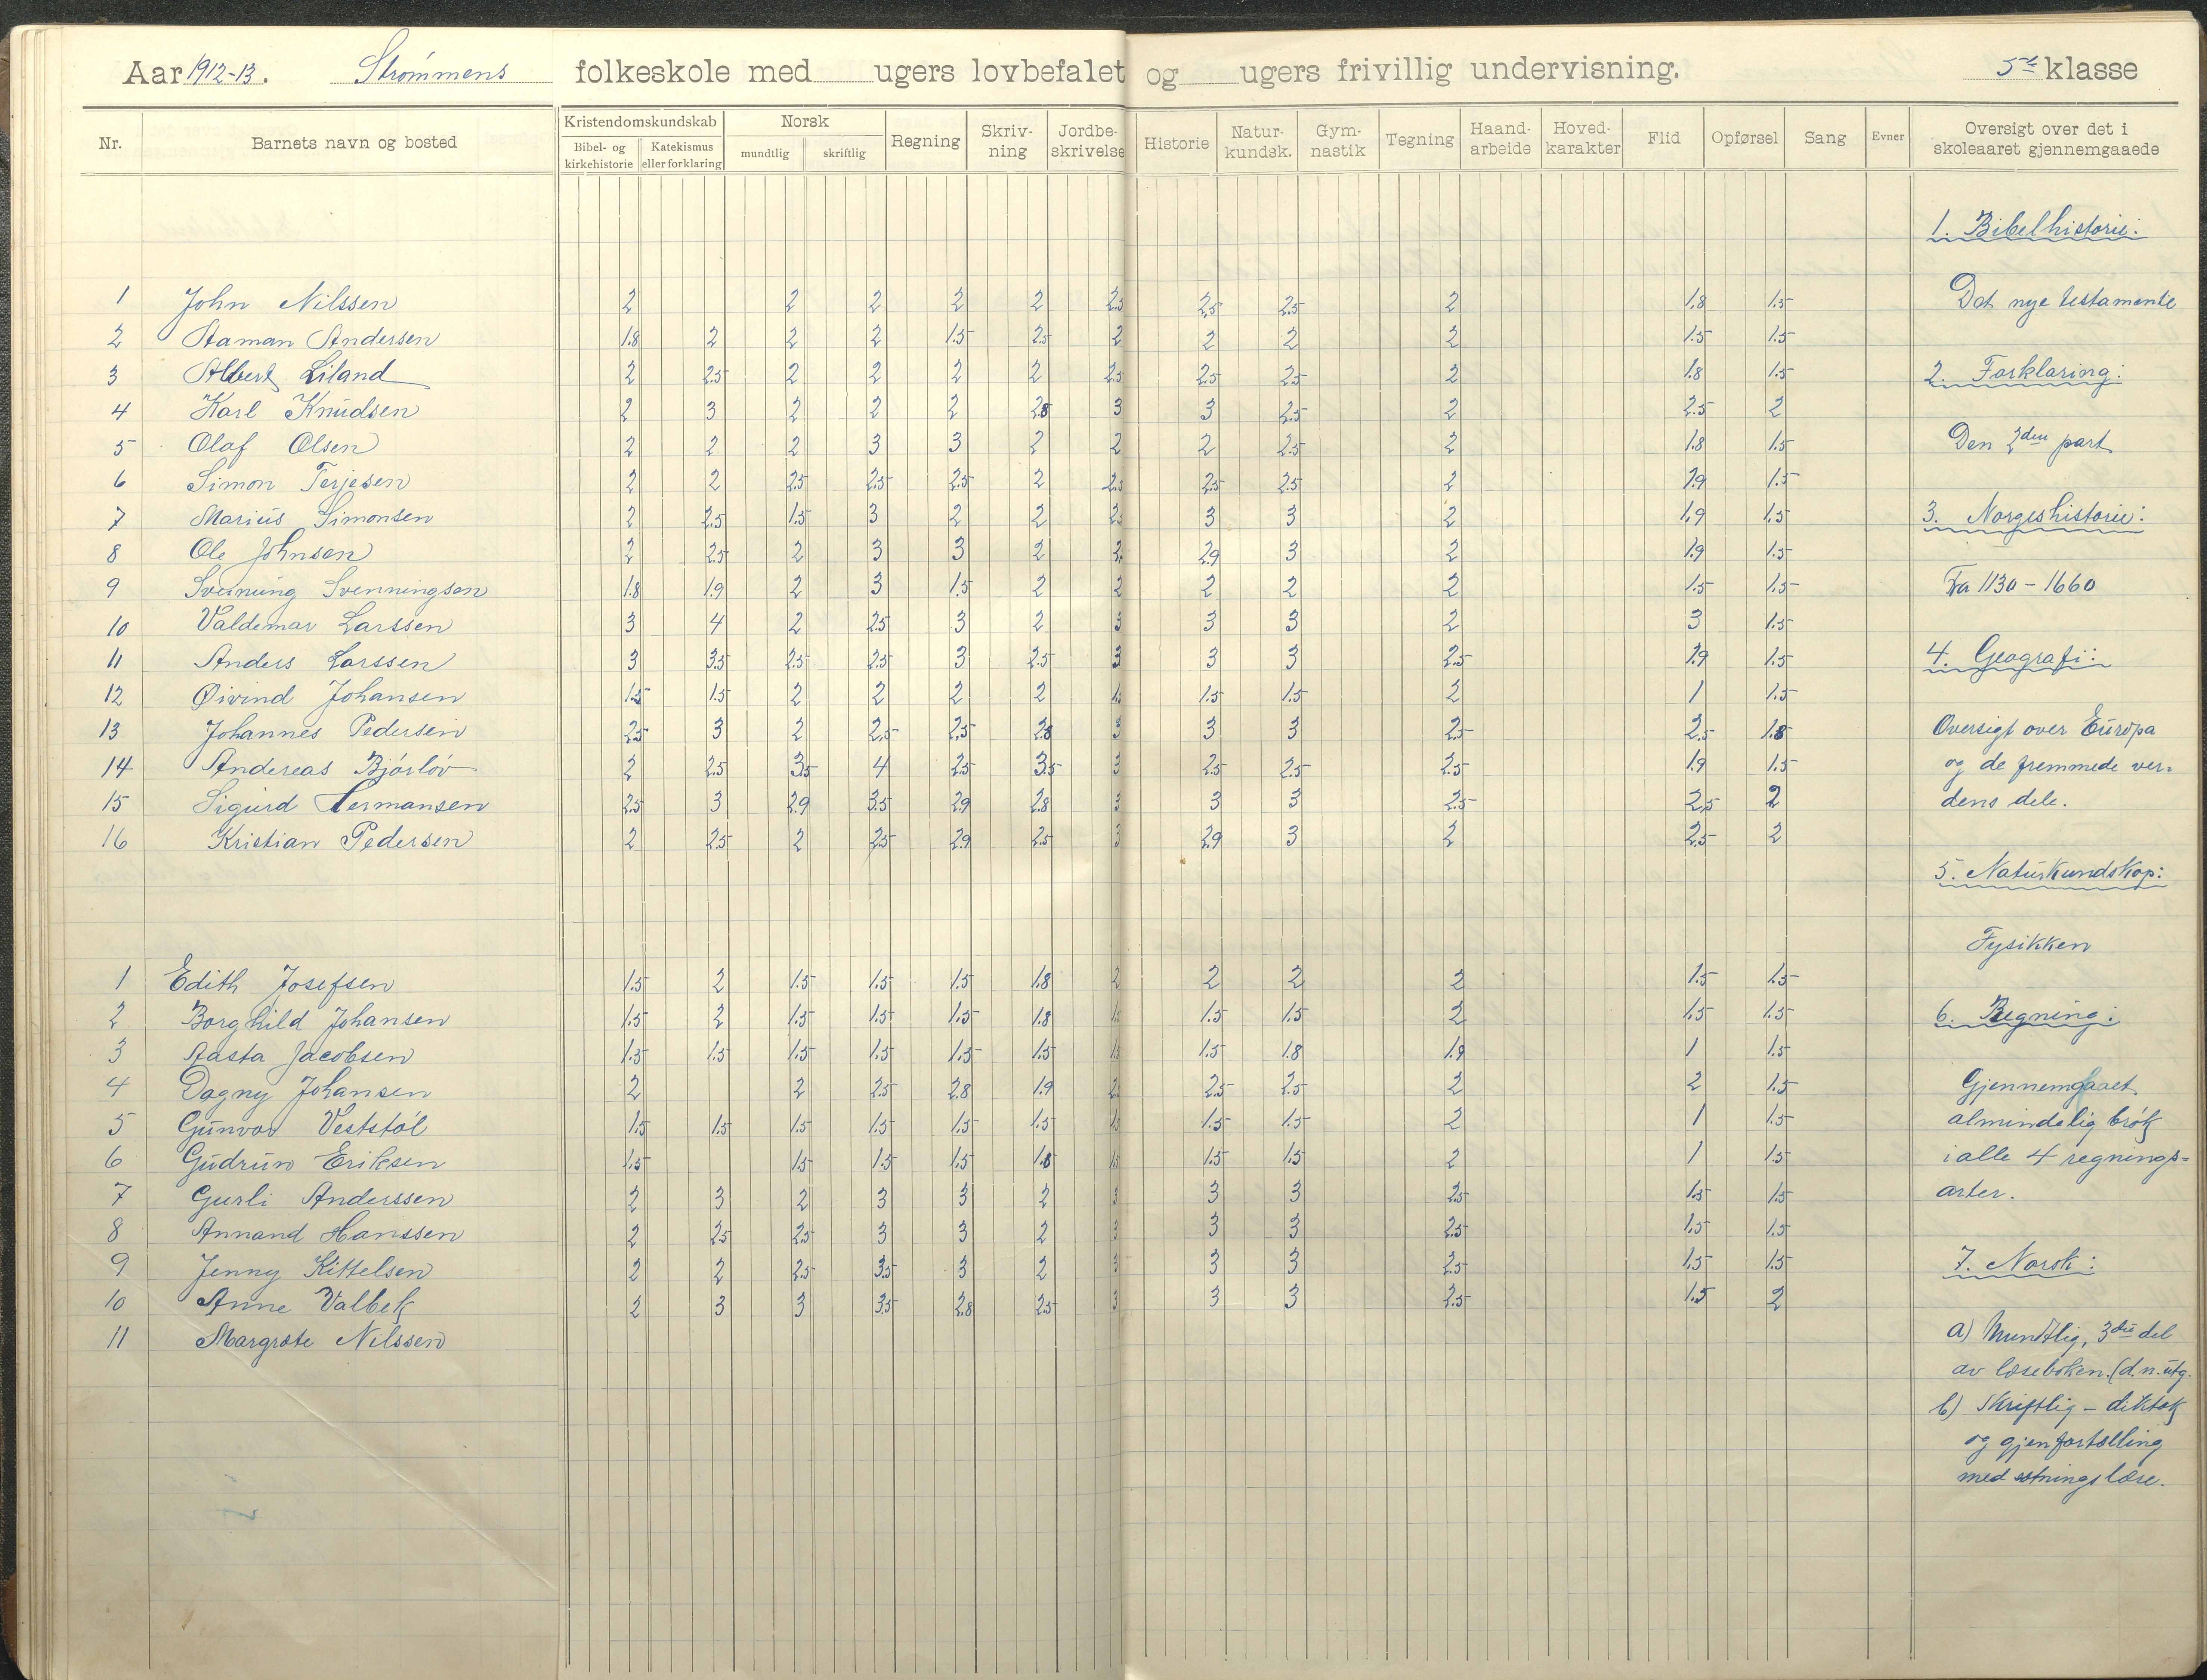 Aar 1912-13. Strømmens folkeskole med ugers lovbefalet og ugers frivillig undervisning. 5te klasse
Nr. Barnets navn og bosted Kristendomskundskab Bibel- og kirkehistorie Katekismus eller forklaring Norsk mundtlig skriftlig Regning Skriv-ning Jordbe-skrivelse Historie Natur-kundsk. Gym-nastik Tegning Haand-arbeide Hoved-karakter Flid Opførsel Sang Evner Oversigt over det i skoleaaret gjennemgaaede
1 John Nilssen 2 2 2 2 2 2.5 2.5 2.5 2 1.8 1.5
2 Aaman Andersen 1.8 2 2 2 1.5 2.5 2 2 2 2 1.5 1.5
3 Albert Liland 2 2.5 2 2 2 2 2.5 2.5 2.5 2 1.8 1.5
4 Karl Knudsen 2 3 2 2 2 2.8 3 3 2.5 2 2.5 2
5 Olaf Olsen 2 2 2 3 3 2 2 2 2.5 2 1.8 1.5
6 Simon Terjesen 2 2 2.5 2.5 2.5 2 2.5 2.5 2.5 2 1.9 1.5
7 Marius Simonsen 2 2.5 1.5 3 2 2 2.5 3 3 2 1.9 1.5
8 Ole Johnsen 2 2.5 2 3 3 2 2. 2.9 3 2 1.9 1.5
9 Sveinung Svenningsen 1.8 1.9 2 3 1.5 2 2 2 2 2 1.5 1.5
10 Valdemar Larssen 3 4 2 2.5 3 2 3 3 3 2 3 1.5
11 Anders Larssen 3 3.5 2.5 2.5 3 2.5 3 3 3 2.5 1.9 1.5
12 Øivind Johansen 1.5 1.5 2 2 2 2 1.5 1.5 1.5 2 1 1.5
13 Johannes Pedersen 2.5 3 2 2.5 2.5 2.8 3 3 3 2.5 2.5 1.8
14 Andreas Bjórlóv 2 2.5 3.5 4 2.5 3.5 3 2.5 2.5 2.5 1.9 1.5
15 Sigurd Hermansen 2.5 3 2.9 3.5 2.9 2.8 3 3 3 2.5 2.5 2
16 Kristian Pedersen 2 2.5 2 2.5 2.9 2.5 3 2.9 3 2 2.5 2
1 Edith Josefsen 1.5 2 1.5 1.5 1.5 1.8 2 2 2 2 1.5 1.5
2 Borghild Johansen 1.5 2 1.5 1.5 1.5 1.8 1.5 1.5 1.5 2 1.5 1.5
3 Aasta Jacobsen 1.5 1.5 1.5 1.5 1.5 1.5 1.5 1.5 1.8 1.9 1 1.5
4 Dagny Johansen 2 2 2.5 2.8 1.9 2.5 2.5 2.5 2 2 1.5
5 Gunvor Veststól 1.5 1.5 1.5 1.5 1.5 1.5 1.5 1.5 1.5 2 1 1.5
6 Gudrun Eriksen 1.5 1.5 1.5 1.5 1.8 1.5 1.5 1.5 2 1 1.5
7 Gurli Anderssen 2 3 2 3 3 2 3 3 3 2.5 1.5 1.5
8 Annand Hanssen 2 2.5 2.5 3 3 2 3 3 3 2.5 1.5 1.5
9 Jenny Kittelsen 2 2 2.5 3.5 3 2 3 3 3 2.5 1.5 1.5
10 Anne Valbek 2 3 3 3.5 2.8 2.5 3 3 3 2.5 1.5 2
11 Margrete Nilssen
1. Bibelhistorie:
Det nye testamente
2. Forklaring:
Den 2den part
3. Norgeshistorie:
Fra 1130 - 1660
4. Geografi:
Oversigt over Europa
og de fremmede ver-
dens dele.
5. Naturkundskap:
Fysikken
6. Regning:
Gjennemgaaet
almindelig brók
i alle 4 regnings-
arter.
7. Norsk:
a) Mundtlig, 3die del
av læseboken. (d. n. utg.
b) Skriftlig - diktat
og gjenfortælling
med sætningslære.